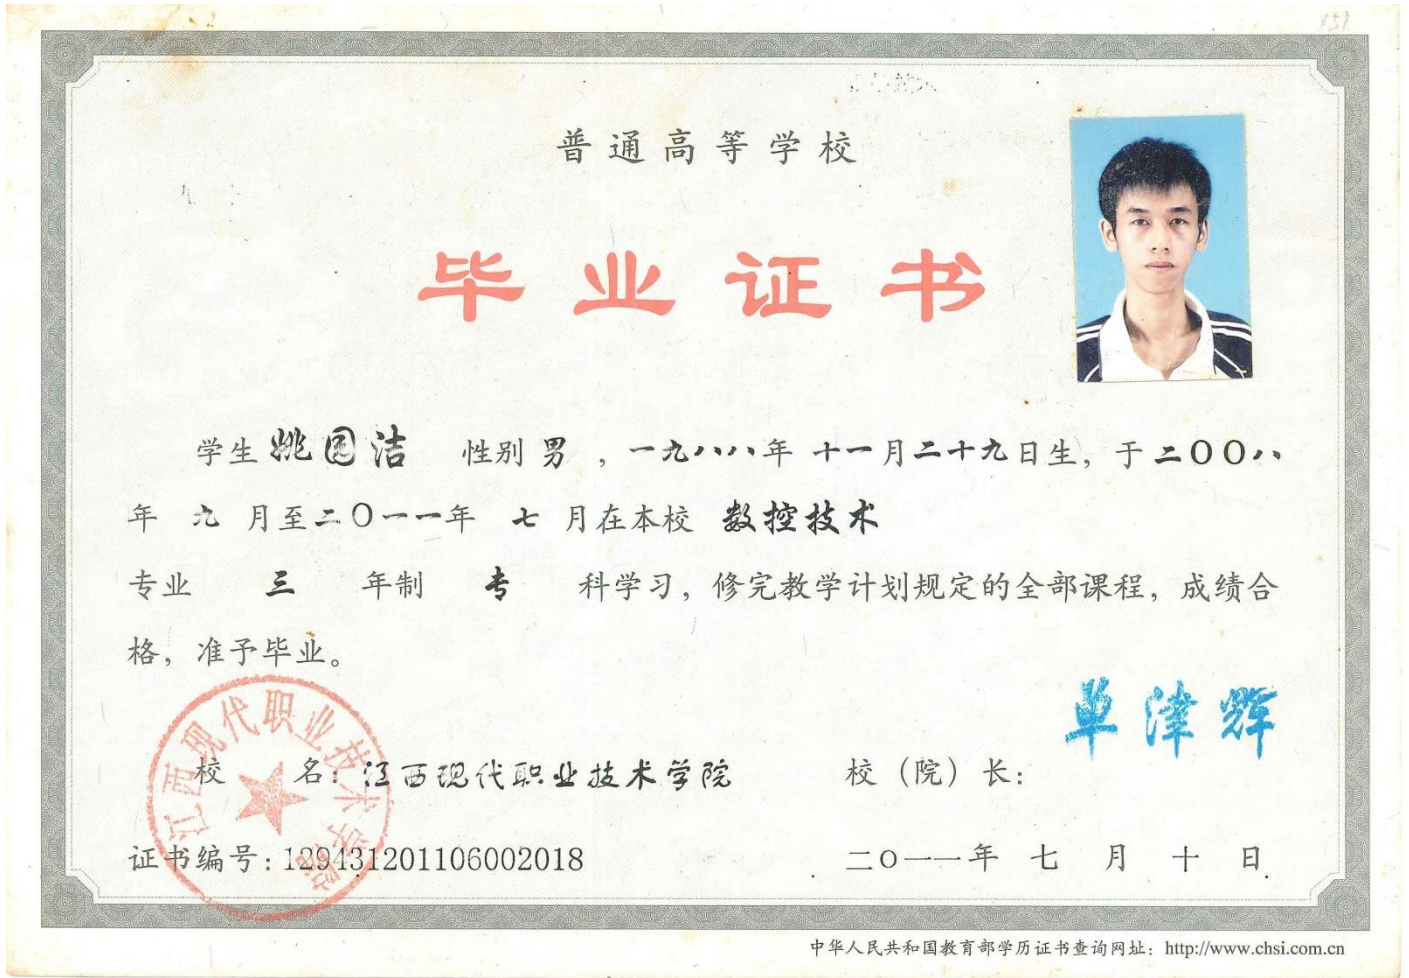 普通高等学校
毕业证书
学生 姚园洁 性别 男 ，一九八八年 十一月二十九日生，于二〇〇八
年 九 月至二〇一一年 七 月在本校 数控技术
专业 三 年制 专 科学习，修完教学计划规定的全部课程，成绩合
格，准予毕业。
单津辉
江西现代职业技术学院
校 名：江西现代职业技术学院 校（院）长：
证书编号：129431201106002018 二〇一一年 七 月 十 日
中华人民共和国教育部学历证书查询网址：http://www.chsi.com.cn